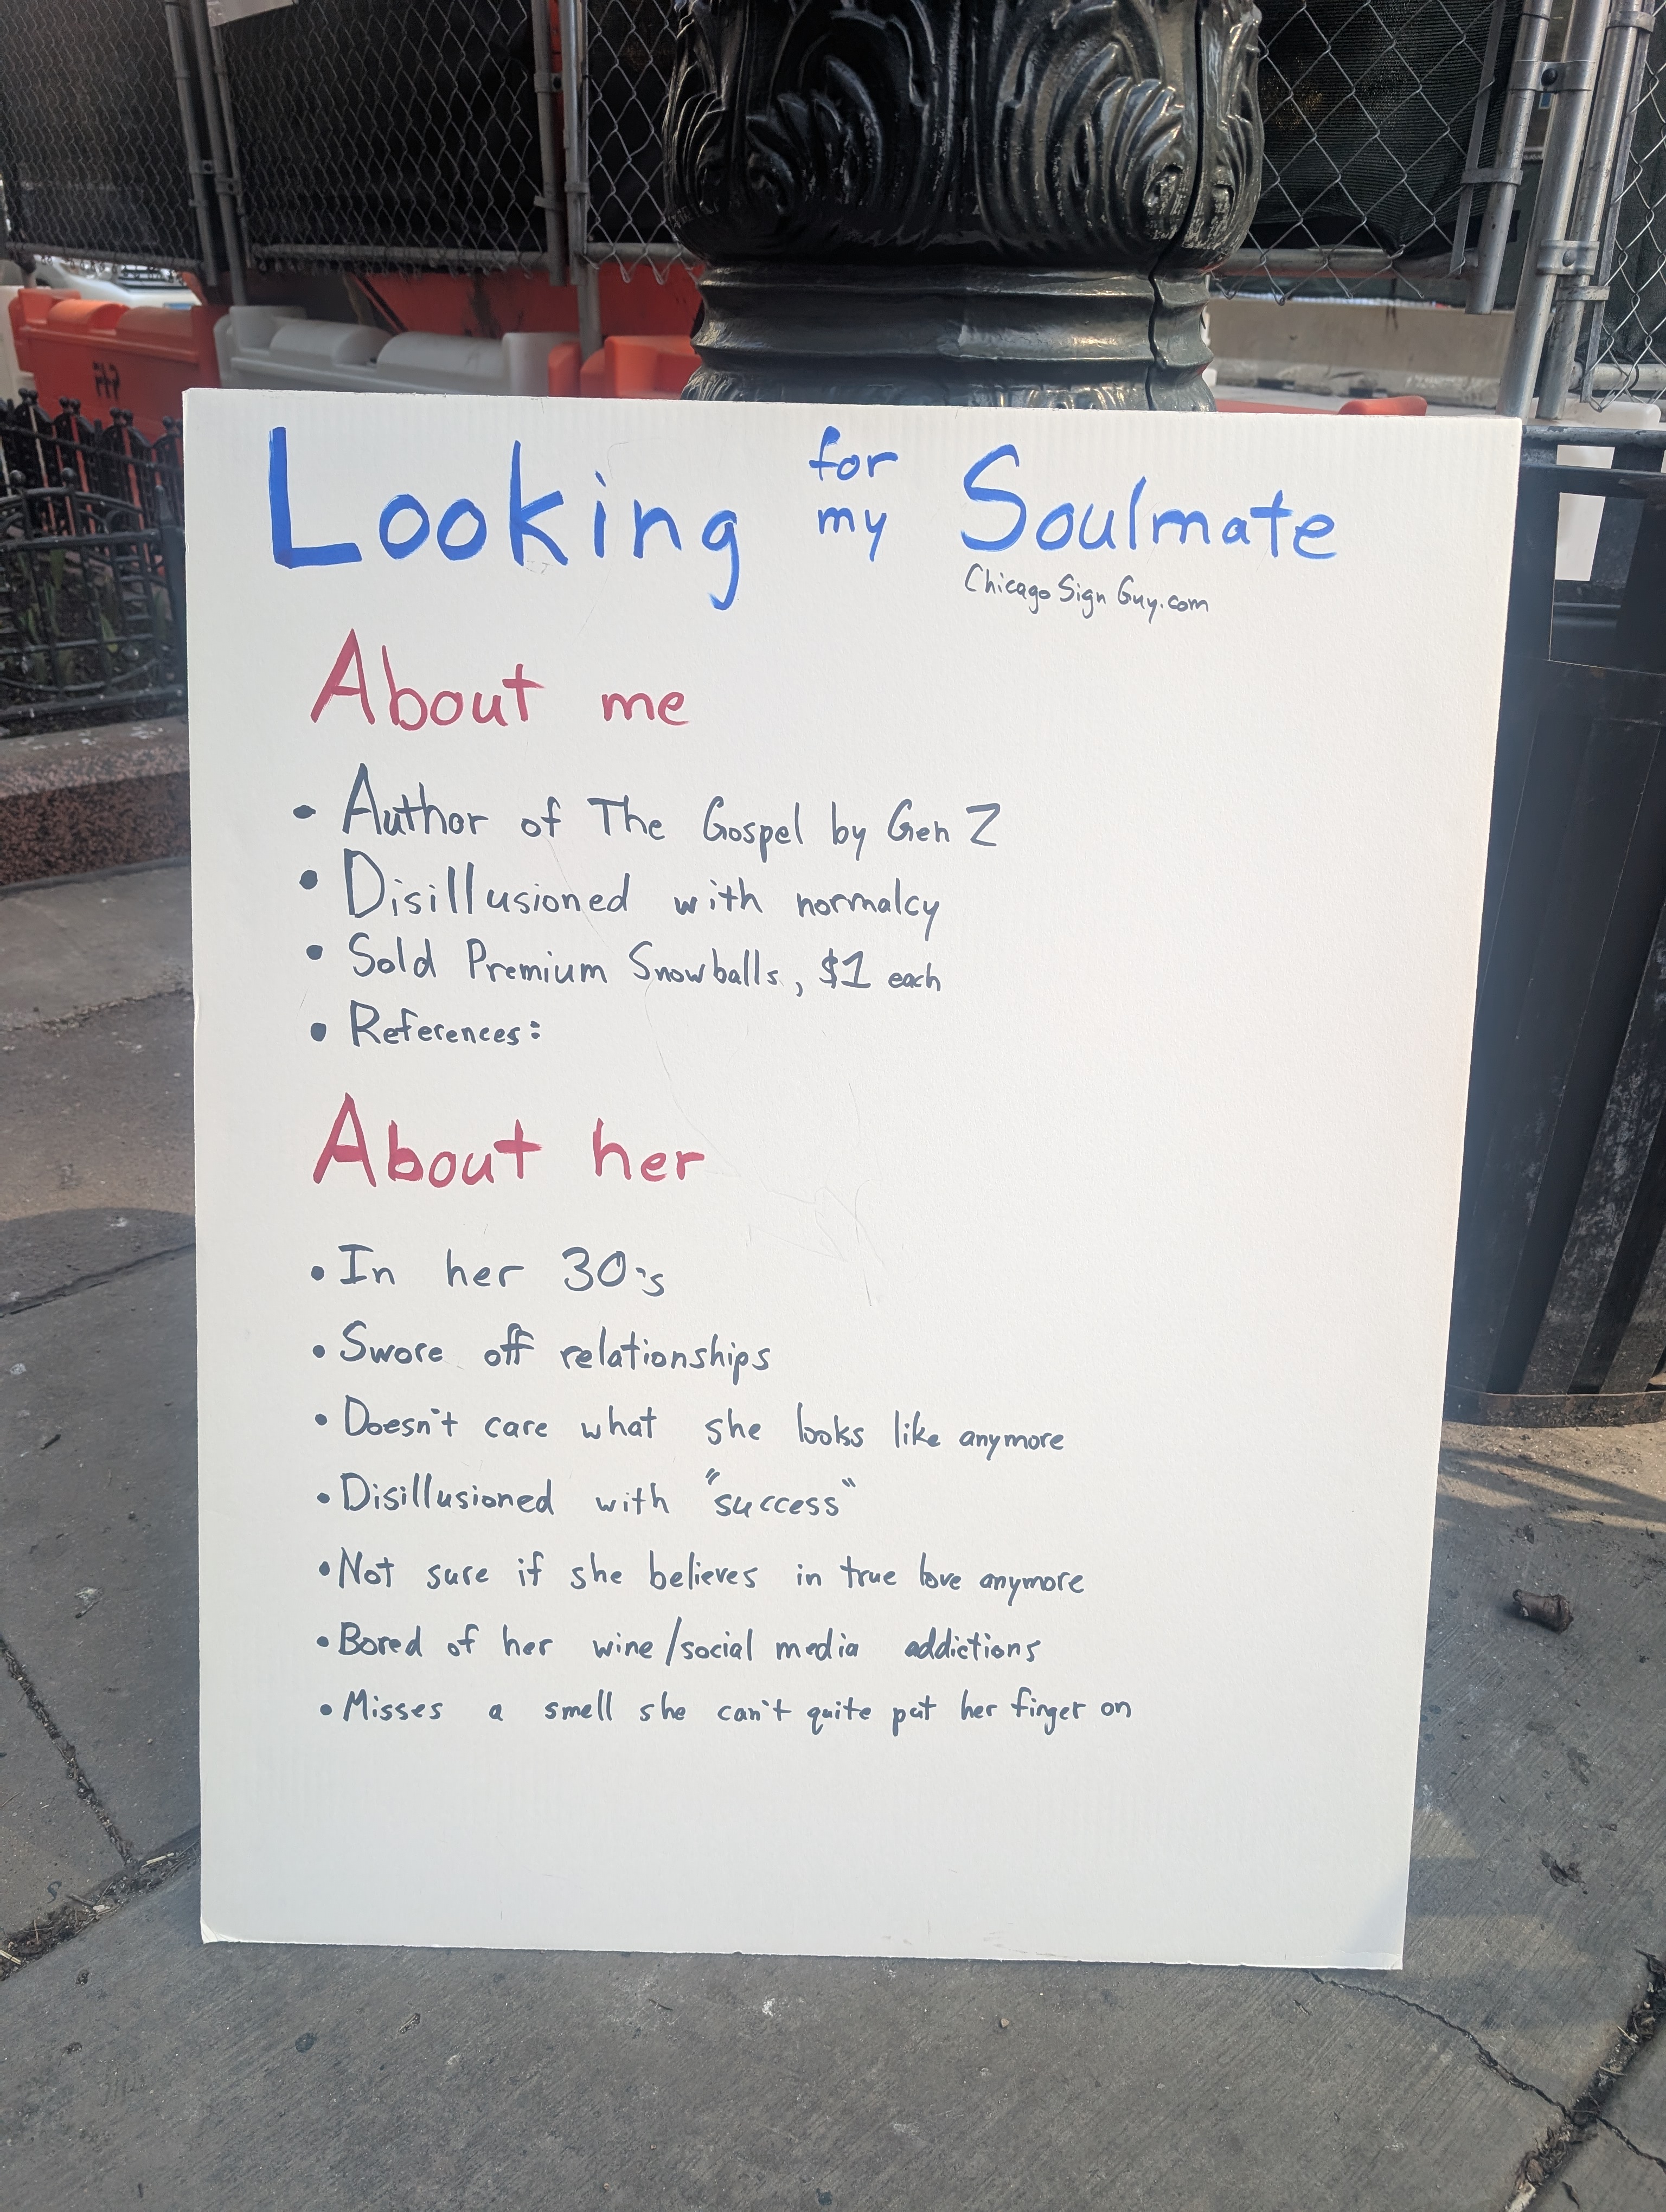 Looking for my Soulmate
ChicagoSignGuy.com
About me
• Author of The Gospel by Gen Z
• Disillusioned with normalcy
• Sold Premium Snowballs, $1 each
• References:
About her
• In her 30's
• Swore off relationships
• Doesn't care what she looks like anymore
• Disillusioned with "success"
• Not sure if she believes in true love anymore
• Bored of her wine/social media addictions
• Misses a smell she can't quite put her finger on